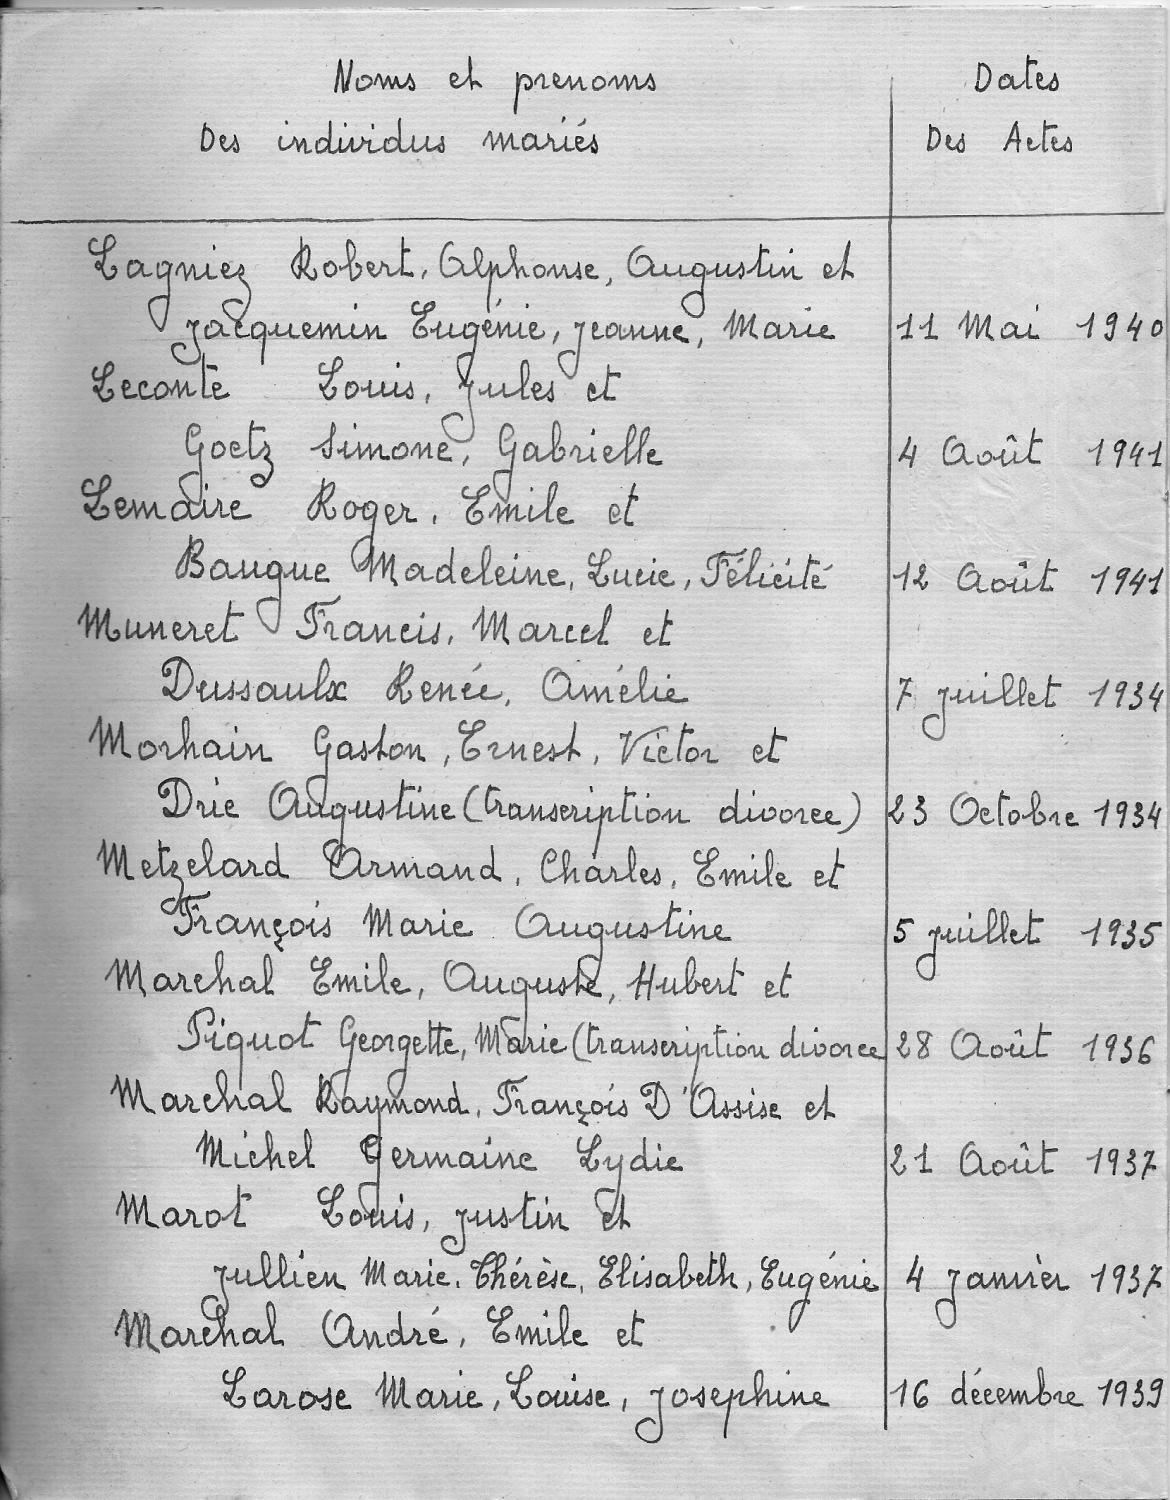 Noms et prenoms Dates
Des individus mariés Des Actes
Lagniez Robert, Alphonse, Augustin et
Jacquemin Eugénie, Jeanne, Marie 11 Mai 1940
Leconte Louis, Jules et
Goetz Simone, Gabrielle 4 Août 1941
Lemaire Roger, Emile et
Baugue Madeleine, Lucie, Félicité 12 Août 1941
Muneret Francis, Marcel et
Dussaulx Renée, Amélie 7 juillet 1934
Morhain Gaston, Ernest, Victor et
Drie Augustine (transcription divorce) 23 Octobre 1934
Metzelard Armand, Charles, Emile et
François Marie Augustine 5 juillet 1935
Marchal Emile, Auguste, Hubert et
Piquot Georgette, Marie (transcription divorce 28 Août 1936
Marchal Raymond, François D'Assise et
Michel Germaine Lydie 21 Août 1937
Marot Louis, Justin et
Jullien Marie, Thérèse, Elisabeth, Eugénie 4 Janvier 1937
Marchal André, Emile et
Larose Marie, Louise, Josephine 16 décembre 1939